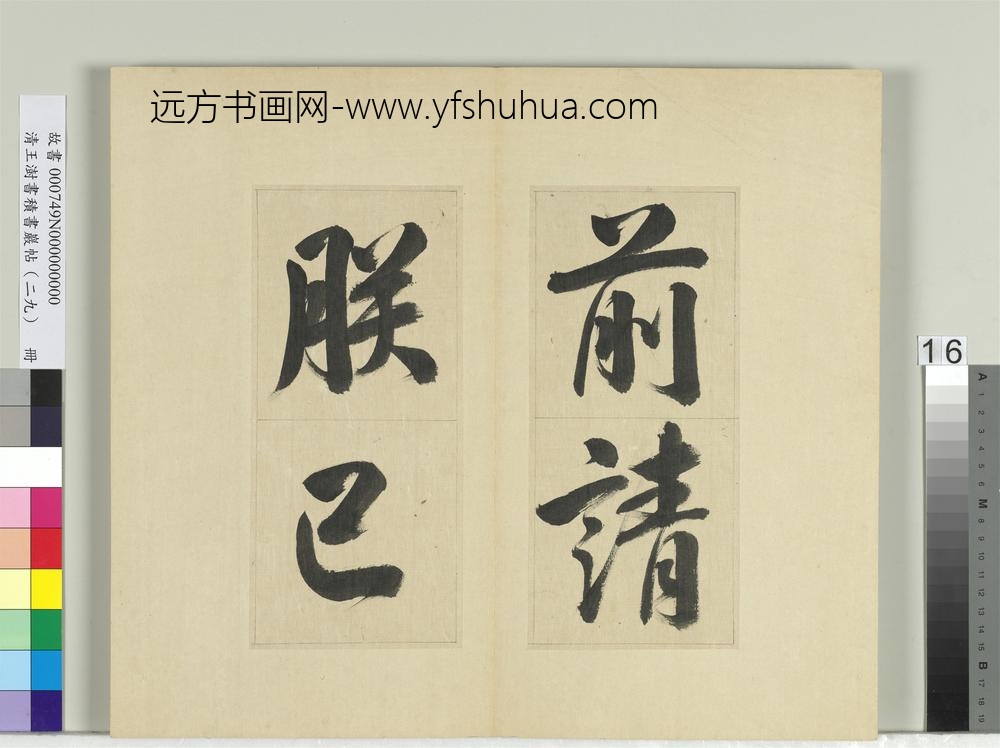 远方书画网-www.yfshuhua.com
前請
朕已
故書 000749N000000000
清王澍書積書巖帖（二九） 冊
16
A 1 2 3 4 5 6 M 8 9 10 11 12 13 14 15 B 17 18 19